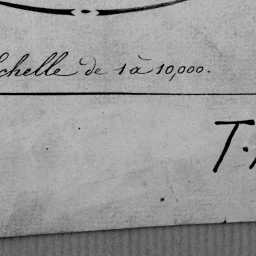 Echelle de 1 à 10,000.
T.